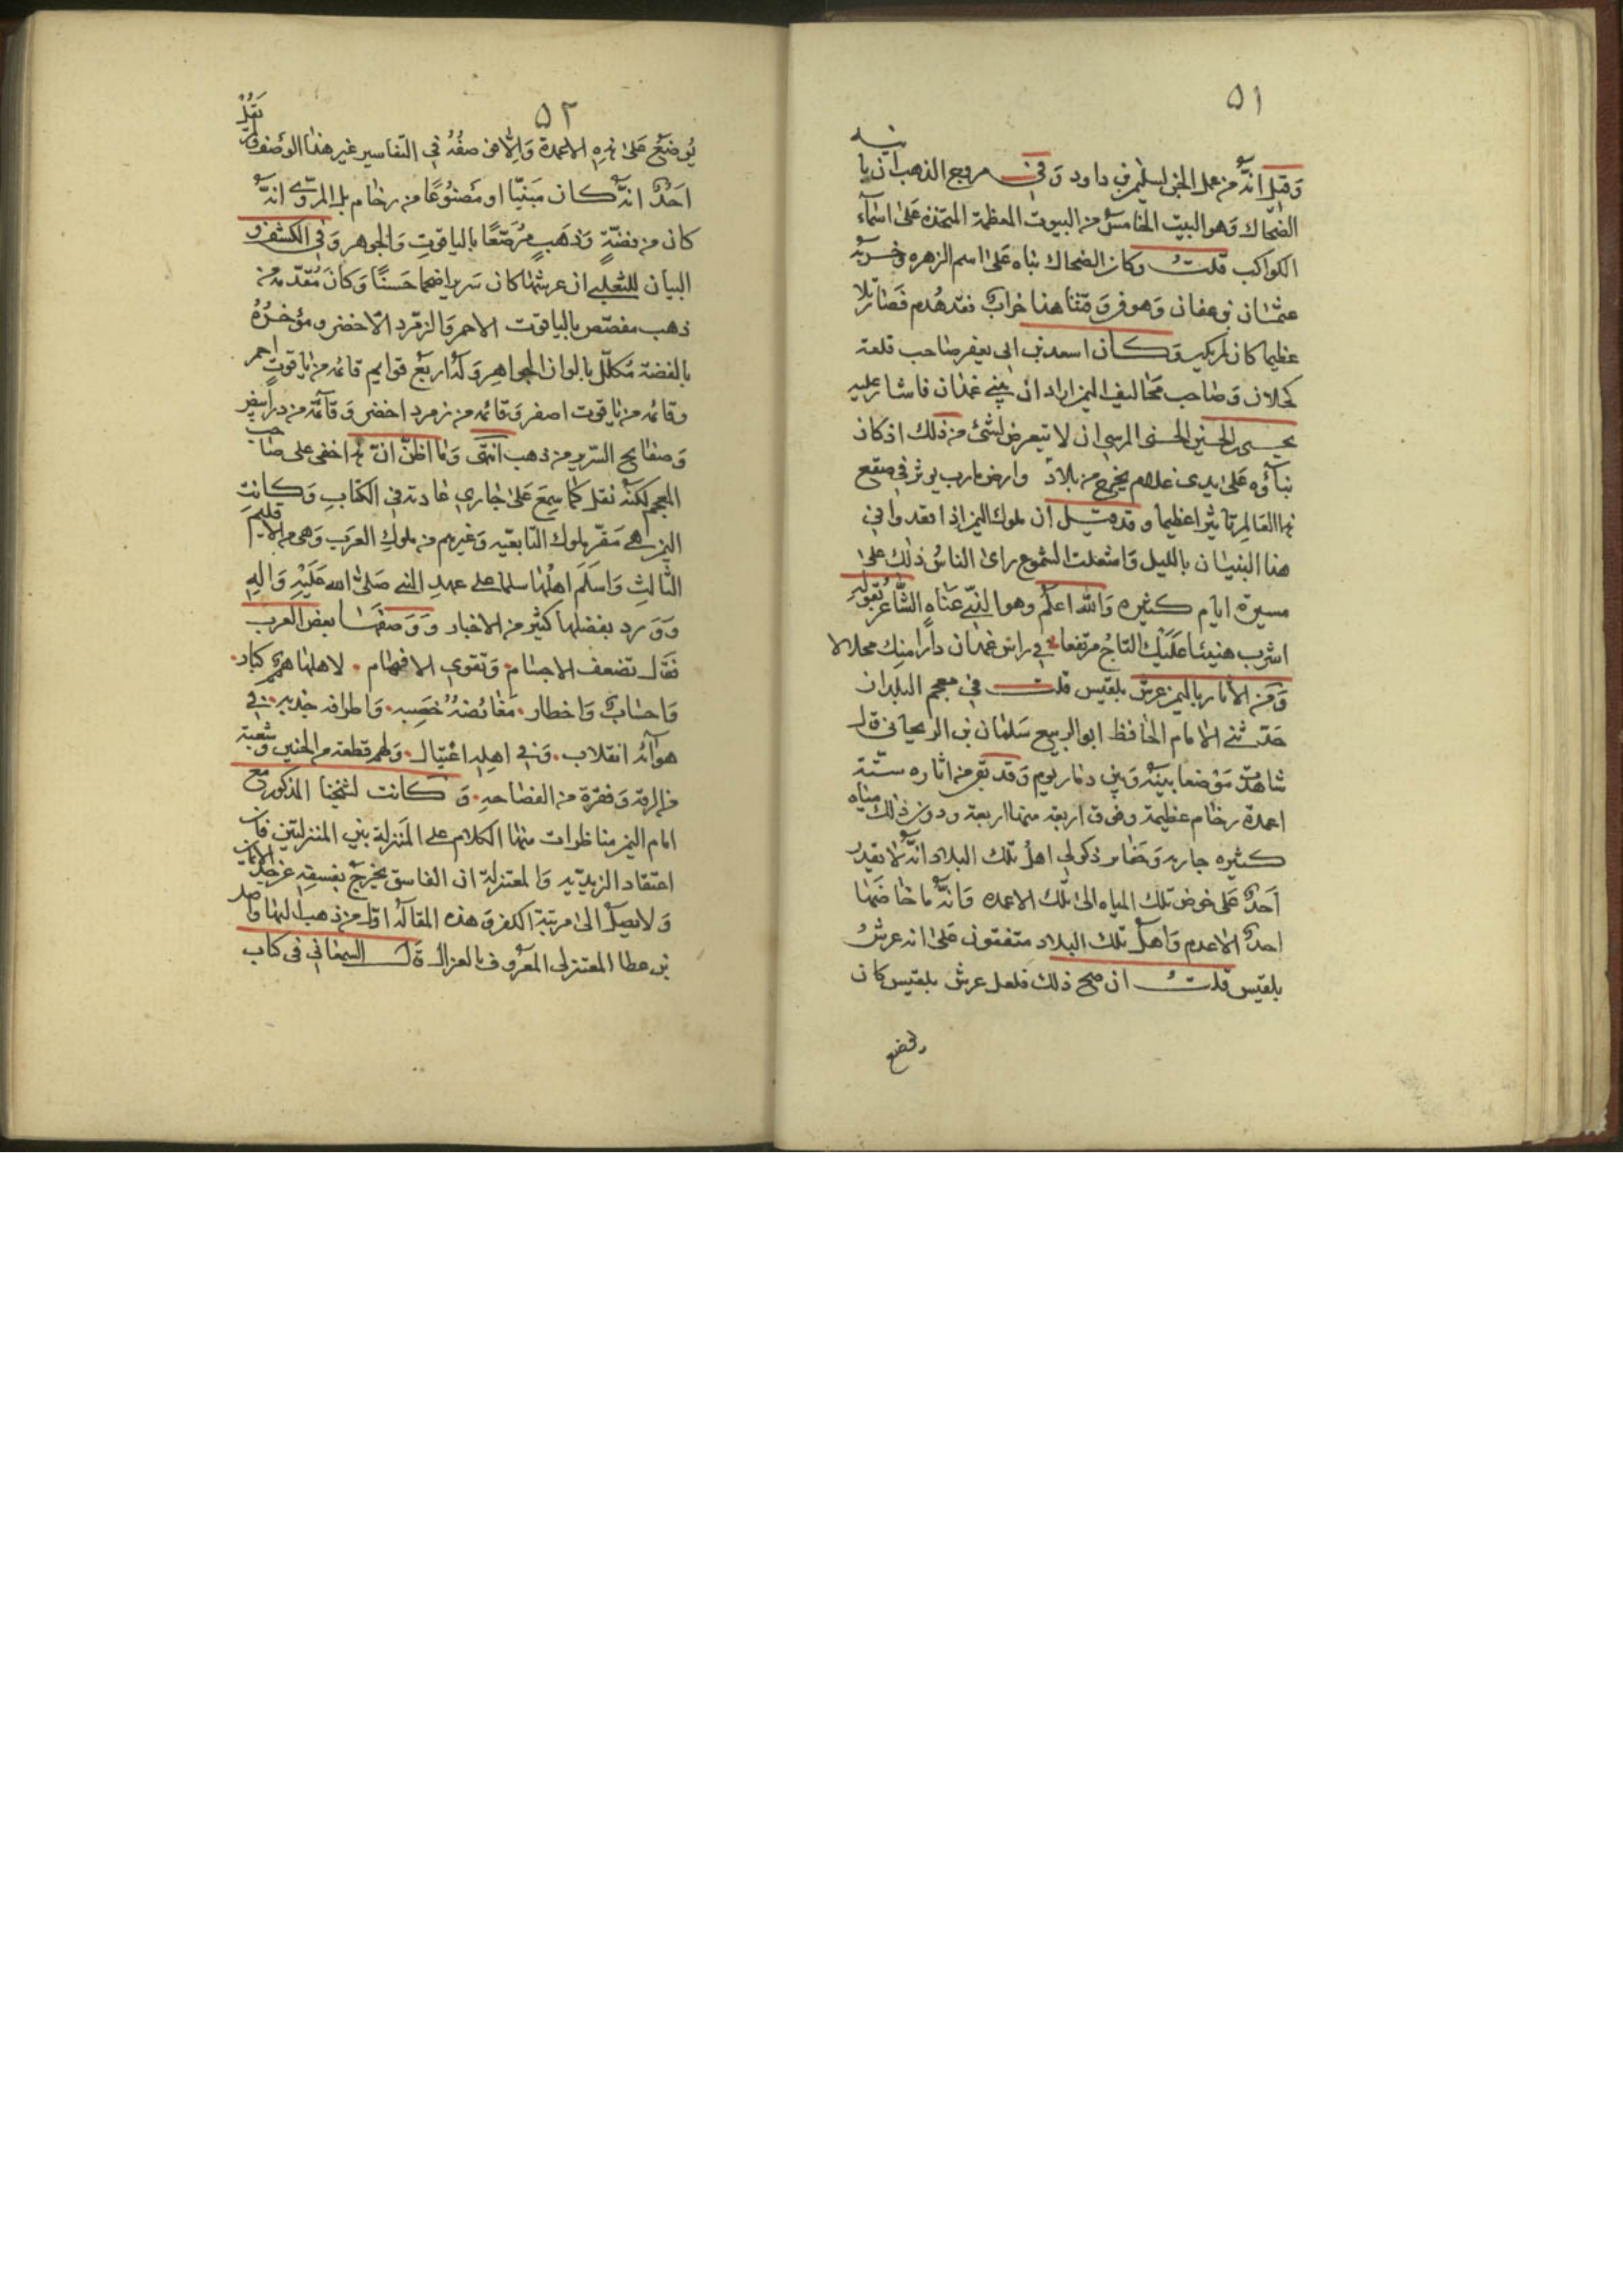 ٥١
وَقيل انّه من عمل الجن لسليمن بن داود وَفي مروج الذهب ان بانيه
الضحاك وَهو البيت الخامس من البيوت المعظمة المتخذه عَلى اسمآء
الكواكب قلتُ وكان الضحاك بناه عَلى اسم الزهره وخربه
عثمان بن عفان وَهو في وَقتنا هذا خرابٌ فقد هُدم فصار تلا
عظيما كان لم يكن وَكان اسعد بن ابي يعفر صَاحب قلعة
كحلان وَصَاحب مخاليف اليمن اراد ان يبني غمدان فاشار عليه
يحيى بن الحسين الحسني الرسي ان لا يتعرض لشئ من ذلك اذ كان
بناؤه عَلى يدى غلام يخرج من بلاد وارض مارب يوثر في صقع
هذا العَالم تاثيرا عظيما وقد قيل ان ملوك اليمن اذا قعدوا في
هذا البنيان بالليل وَاشتعلت الشموع راى الناسُ ذلك على
مسيرة ايام كثيره وَالله اعلم وهو الذي عنَاه الشاعر بقوله
اشرب هنيئا عَلَيْك التاجُ مرتفعا في راس غمدان دارا منك محلالا
وَمن الاثار باليمن عرش بلقيس قلت في معجم البلدان
حَدّثني الامام الحَافظ ابو الربيع سَلمان بن الريحاني قال
شاهدت مَوْضعا بينه وَبين ذمار يوم وَقد بقي من اثاره ستة
اعمدة رخام عظيمة وفوق اربعه منها اربعة ودون ذلك مياه
كثيره جاريه وَحفاير ذكر لي اهلُ تلك البلاد انّه لا يقدر
أحدٌ عَلى خوض تلك المياه الى تلك الاعمده وَانّه ما خاضَها
احدٌ الا عدم وَاهل تلك البلاد متفقون عَلى انه عرشُ
بلقيس قلت ان صح ذلك فلعل عرش بلقيس كان
يوضع
٥٢
يُوضَعُ عَلى هذه الاعمدة وَالا فى صفته في التفاسير غير هذا الوصف وَلم يَقُل
احَدٌ انه كان مَبنيّا او مَصنُوعًا من رخام بل المروّي انّه
كان من فضّةٍ وَذهَبٍ مُرَصّعًا باليَاقوتِ وَالجوهر وَفي الكشف و
البيان للثعلبي ان عرشها كان سَريرا ضخما حَسنًا وَكانَ مُقدّمه من
ذهب مفصّص باليَاقوت الاحمر وَالزمّرد الاخضر ومؤخرُهُ
بالفضة مُكلّل بالوان الجواهر وَلهُ اربَع قوايم قائمه من ياقوتٍ احمر
وقائمه من ياقوت اصفر وَقائمه من زمرد اخضر وَقآئمة من در أبيض
وَصفايح السّرير من ذهب انتهى وَمَا اظنّ انّ هذا خفى على صاحب
المعجم لكنّه نقل كمَا سمِعَ عَلى جَاري عَادته في الكتابِ وَكانت
اليمن هي مَقرّ ملوك التبابعَه وَغيرهم من ملوكِ العرَب وَهي من الاقليم
الثَالثِ وَاسلَمَ اهْلهَا سلما على عهدِ النبي صَلى الله عَلَيْهِ وَالِهِ
وَوَرد بفضلهَا كثير من الاخبار وَوَصفَهَا بعض العرب
فقَال تضعف الاجسَام وَتقوي الافهَام لاهلهَا همم كبار
وَاحسَابٌ وَاخطار مَغائصُهُ خَصِيبه وَاطرافه جَديبه في
هوآئه انقلاب وَفي اهلِهِ اغتيال وَلهم قطعة من الحسن وشعبة
من الرقة وَفقرة من الفصَاحه وَكانت لشيخنا المذكور مَع
امام اليمن مناظرات منها الكلام على المَنزلة بين المنزلتين فان
اعتقاد الزيديّه وَالمعتزله ان الفاسق يخرج بفسقه عن حد الايمان
وَلا يصل الى مرتبة الكفر وَهذه المقالهُ اول من ذهب اليها واصل
بن عطا المعتزلي المعرُوف بالغزال قال السمعاني في كتاب